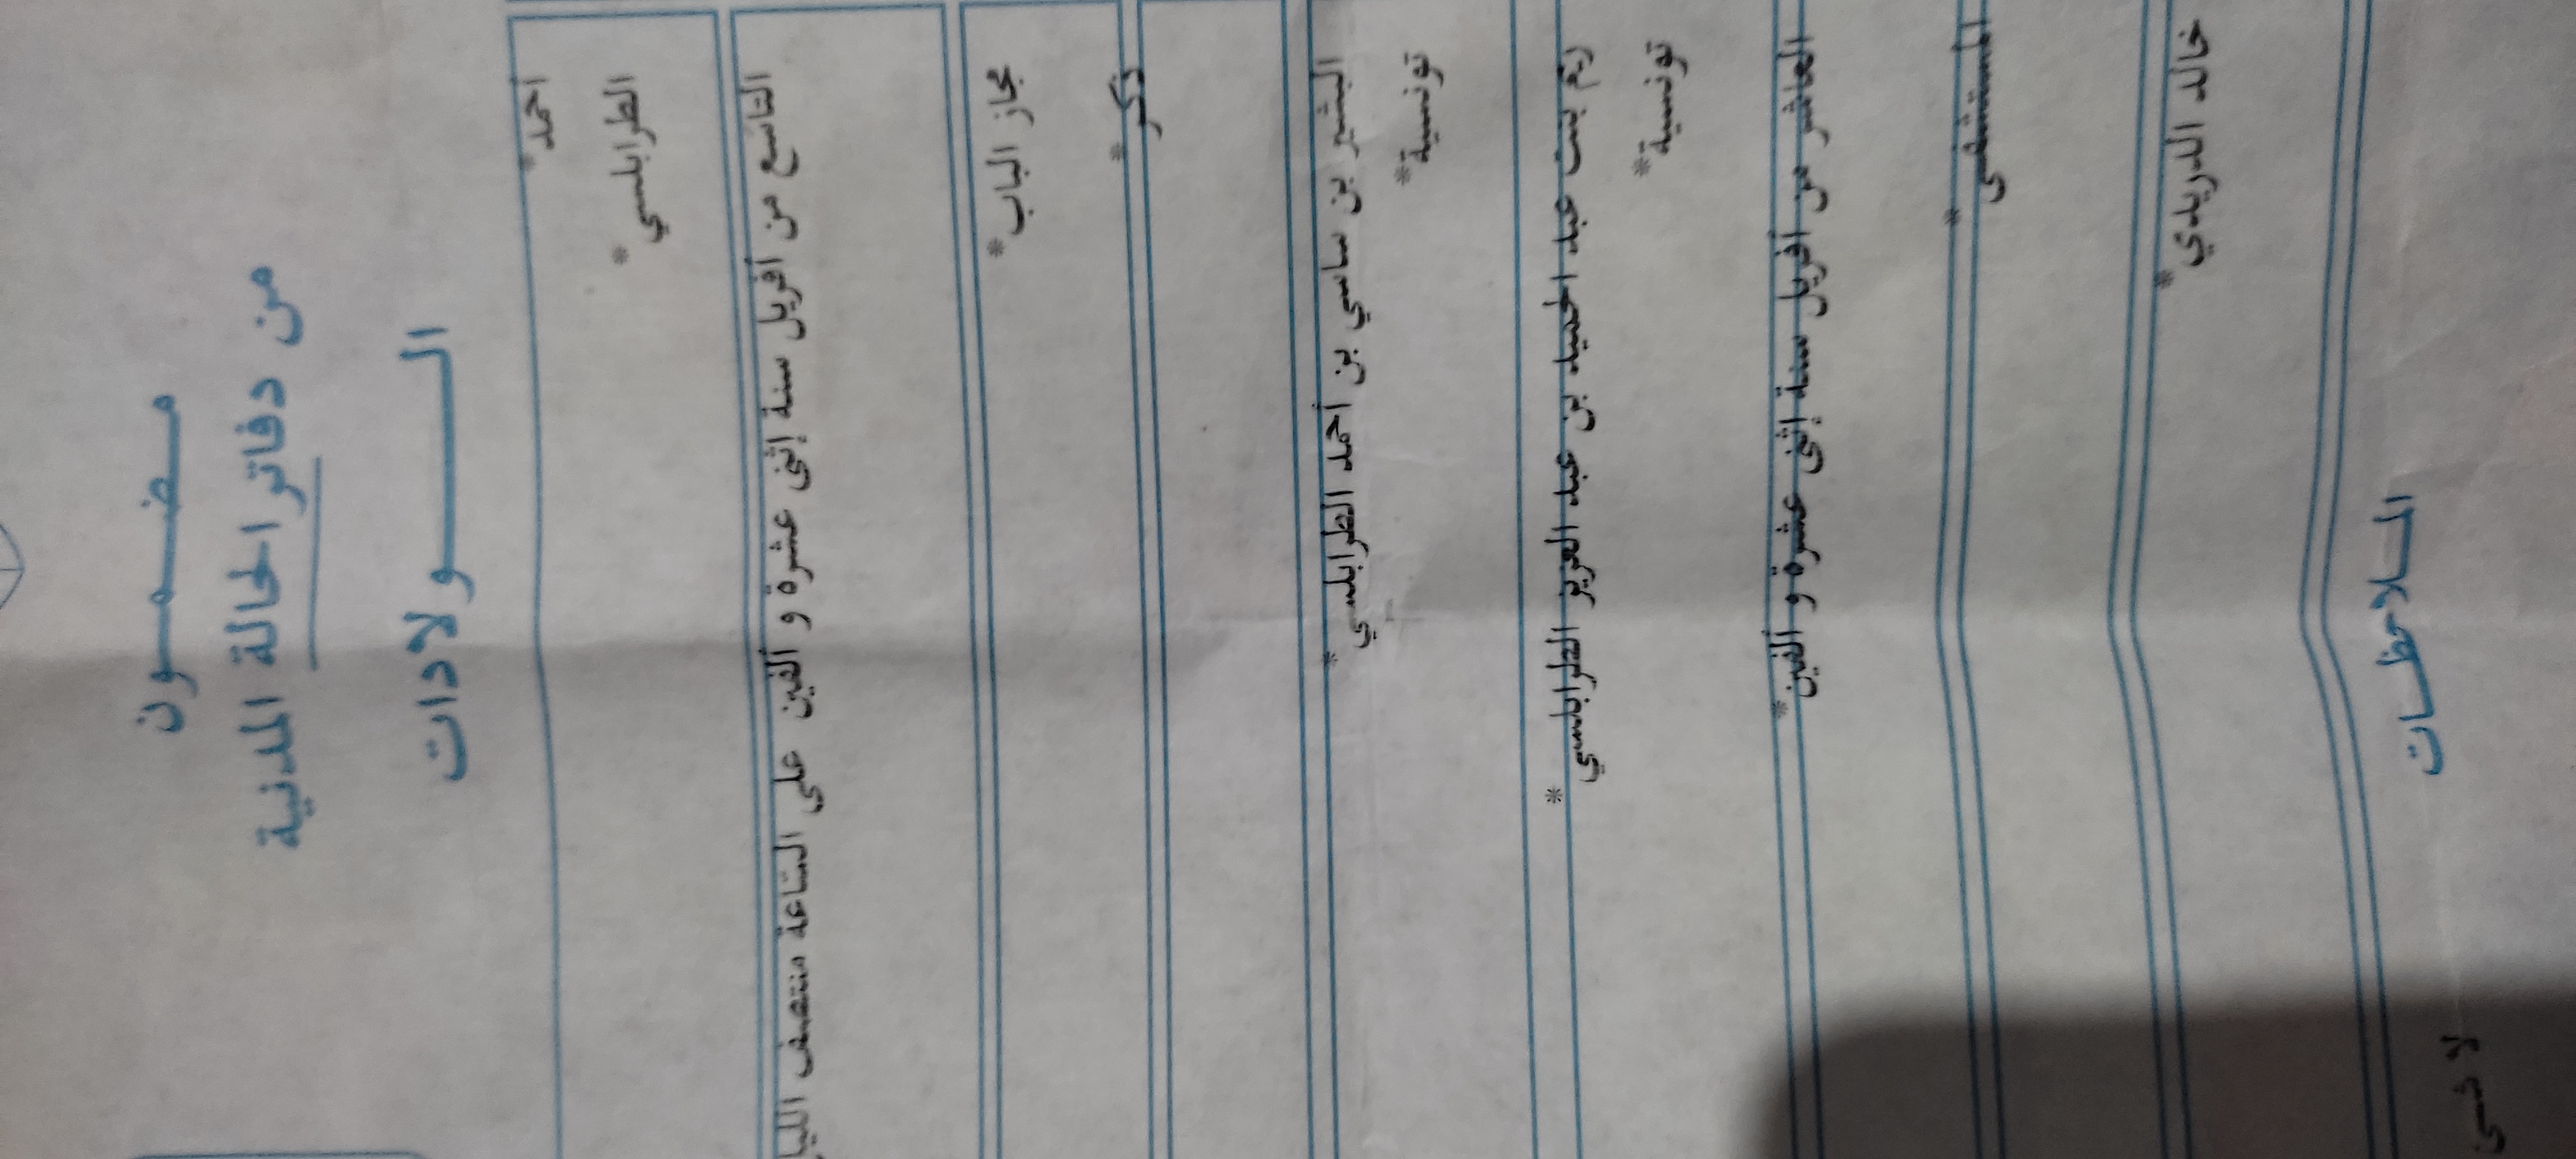 مضمون
من دفاتر الحالة المدنية
الولادات
احمد*
الطرابلسي*
التاسع من أفريل سنة إثنى عشرة و ألفين على الساعة منتصف
مجاز الباب*
ذكر*
البشير بن ساسي بن احمد الطرابلسي*
تونسية*
ريم بنت عبد الحميد بن عبد العزيز الطرابلسي*
تونسية*
العاشر من أفريل سنة إثنى عشرة و ألفين*
المستشفى*
خالد الدريدي*
الملاحظات
لا شي